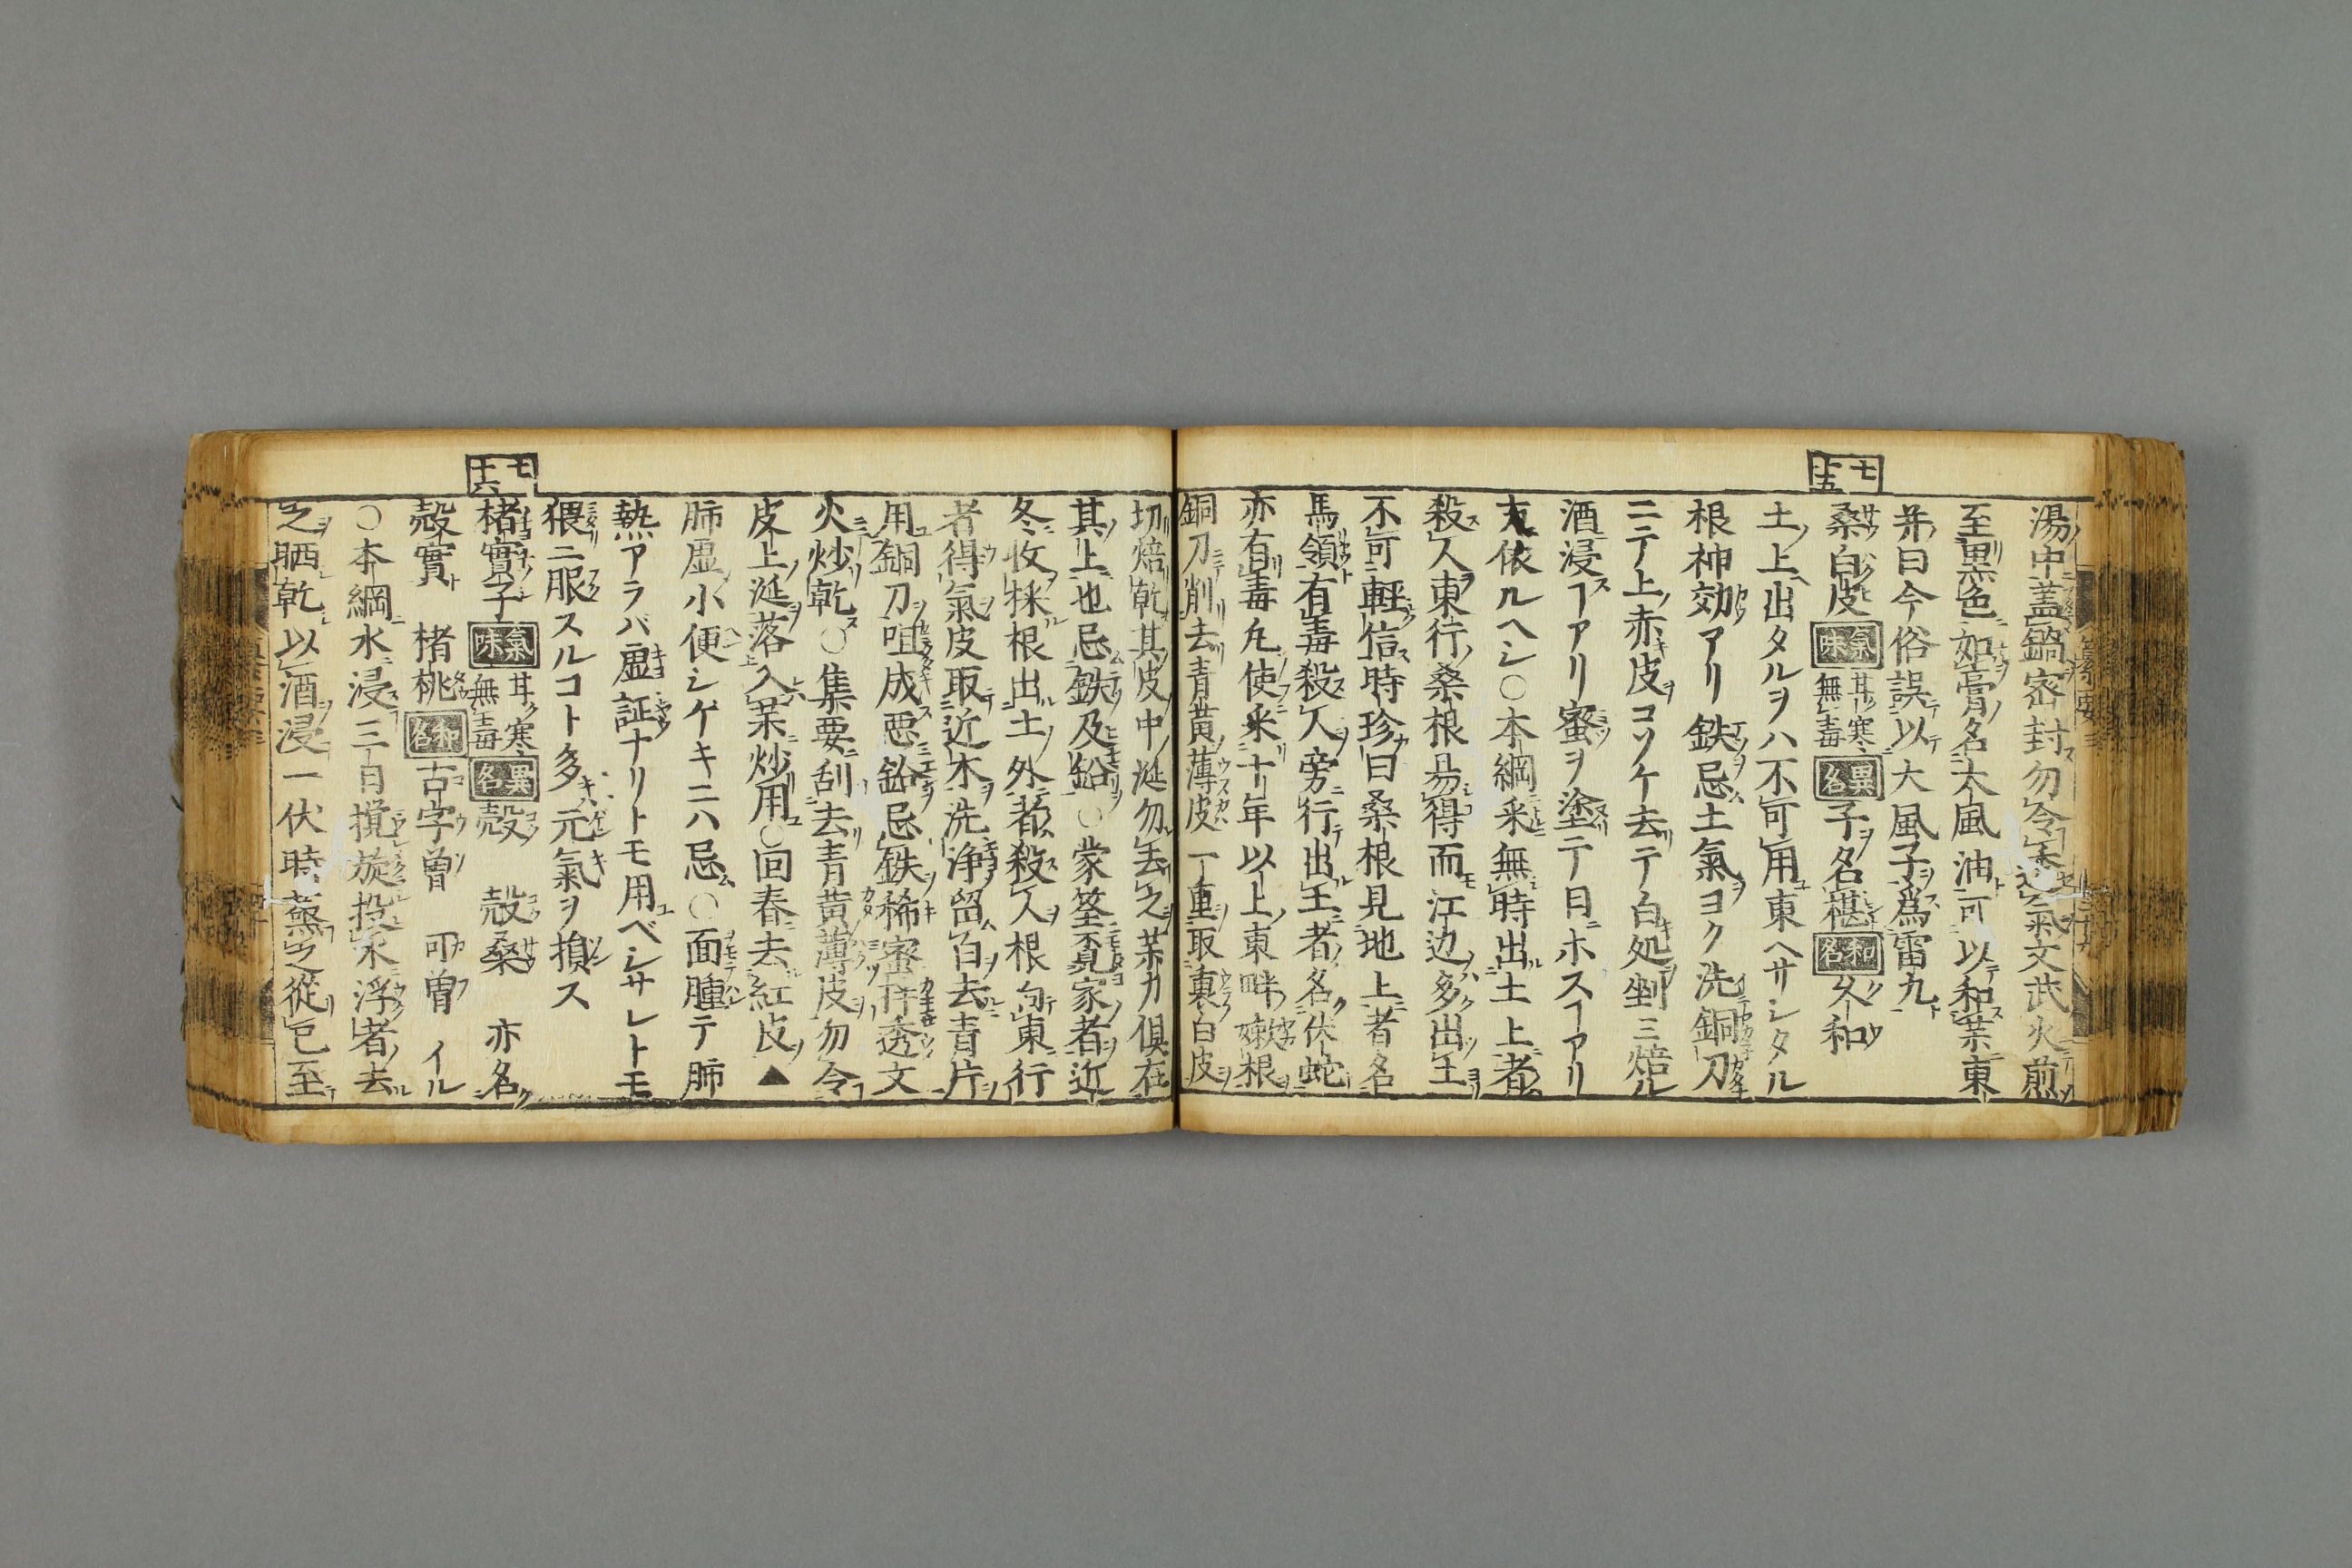 七十五
湯中蓋鍋密封勿令透氣文武火煎
至黒色如膏名大風油可以和薬東
井曰今俗誤以大風子爲雷丸
桑白皮 氣味 甘寒無毒 異名 子名椹 和名 久和
土上出タルヲハ不可用東ヘサシタル
根神効アリ鉄忌土氣ヨク洗銅刀
ニテ上赤皮コソケ去テ白処剉三焙ル
酒浸スアリ蜜ヲ塗テ日ホスアリ
依ルヘシ○本綱采無時出土上者
殺人東行桑根易得而江辺多出土
不可軽信時珍曰桑根見地上者名
馬領有毒殺人旁行出土者名伏蛇
亦有毒 使采十年以上東畔嫩根
銅刀削去青黄薄皮一重取裏白皮
切焙乾其皮中涎勿去之薬力倶在
其上也忌鉄及鉛○蒙筌 家者近
冬收採根出土外者殺人根向東行
者得氣皮取近木洗浄留白去青片
用銅刀咀成悪鉛忌鉄稀蜜拌透文
火炒乾○集要刮去青黄薄皮勿令
皮上涎落入薬炒用○回春去紅皮▲
肺虚小便シゲキニハ忌○面腫テ肺
熱アラバ虚証ナリトモ用ベシサレトモ
猥ニ服スルコト多キハ元氣ヲ損ス
七十六
楮實子 氣味 甘寒無毒 異名 㱿 㱿桑 亦名
㱿實 楮桃 和名 古字曽 可曽イル
○本綱水浸三日攪旋投水浮者去
之晒乾以酒浸一伏時蒸之從巳至